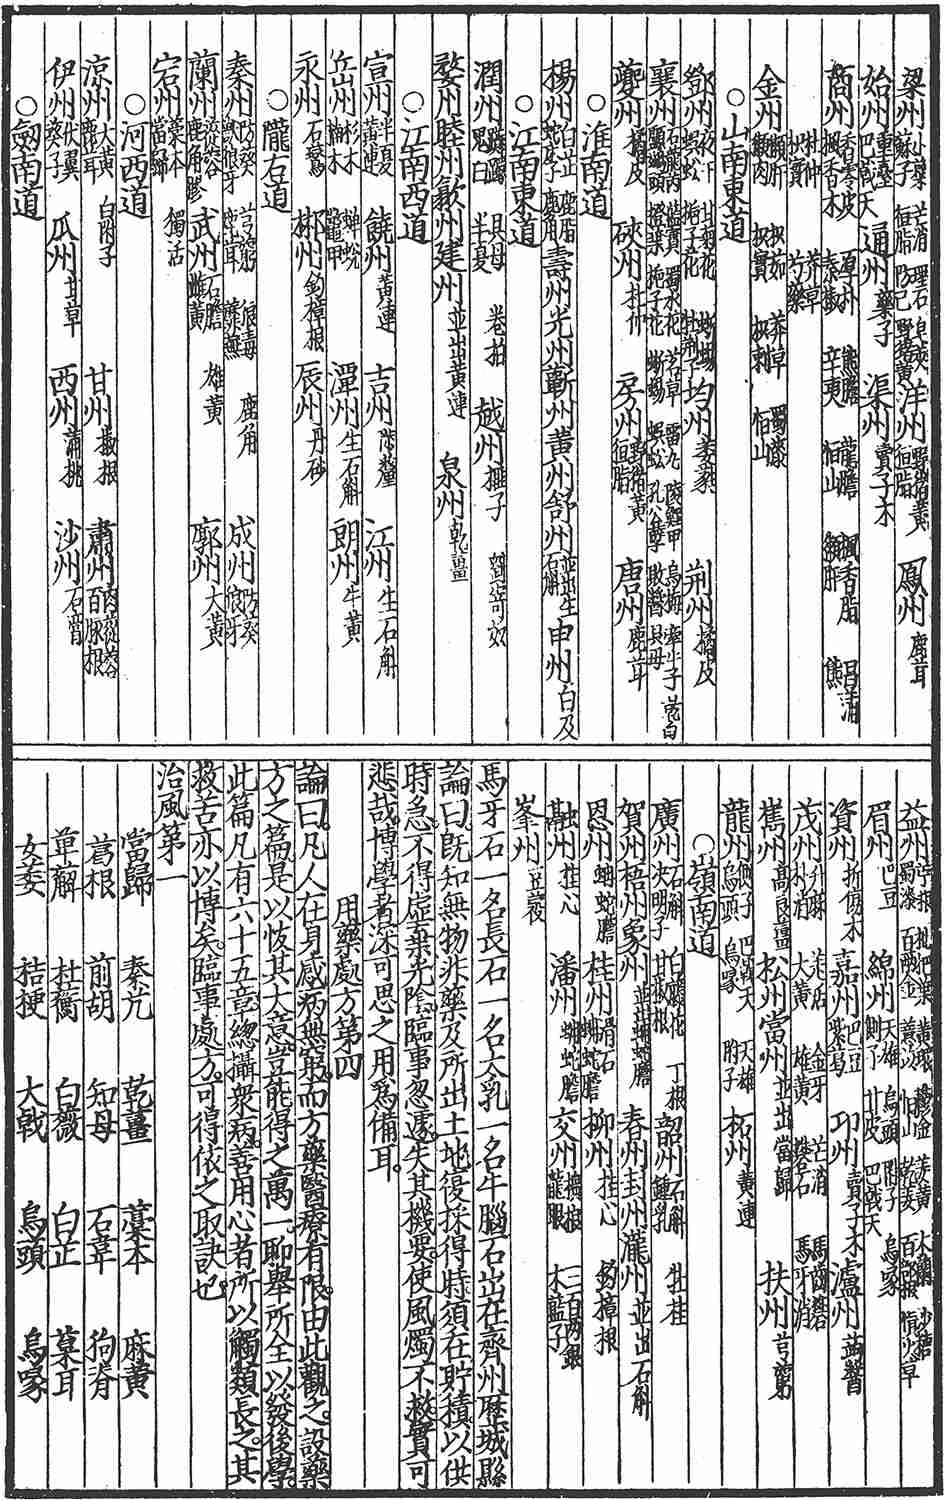 梁州 小蘗 芒消 理石 皂莢 蘇子 狟脂 防己 野豬黃 洋州 野豬黃 狟脂 鳳州 鹿茸
始州 重臺 巴戟天 通州 藥子 渠州 賣子木
商州 香零皮 厚朴 熊膽 龍膽 楓香脂 昌蒲 楓香木 秦椒 辛夷 恒山 獺肝 熊
杜仲 莽草 枳實 芍藥
金州 獺肝 枳茹 莽草 蜀漆 獺肉 枳實 枳刺 恒山
○山南東道
鄧州 夜干 甘菊花 蜥蜴 蜈蚣 梔子花 牡荆子 均州 萎蕤 荆州 橘皮
襄州 石龍芮 藍實 蜀水花 茗草 雷丸 陵鯉甲 烏梅 牽牛子 乾白 鸕鷀頭 橙葉 梔子花 蜥蜴 蜈蚣 孔公孽 敗醬 貝母
夔州 橘皮 硤州 杜仲 房州 野豬黃 狟脂 唐州 鹿茸
○淮南道
楊州 白芷 鹿脂 蛇床子 鹿角 壽州光州蘄州黃州舒州 並出生石斛 申州 白及
○江南東道
潤州 鬼臼 貝母 半夏 卷柏 越州 榧子 劉寄奴
婺州睦州歙州建州 並出黃連 泉州 乾薑
○江南西道
宣州 半夏 黃連 饒州 黃連 吉州 陟釐 江州 生石斛
岳州 杉木 蟬蛻 楠木 鱉甲 潭州 生石斛 朗州 牛黃
永州 石鷰 郴州 釣樟根 辰州 丹砂
○隴右道
秦州 防葵 芎藭 狼毒 鹿角 狼牙 鹿茸 蘼蕪 成州 防葵 狼牙
蘭州 蓯蓉 鹿角膠 武州 石膽 雌黃 雄黃 廓州 大黃
宕州 藁本 當歸 獨活
○河西道
涼州 大黃 鹿茸 白附子 甘州 椒根 肅州 肉蓯蓉 百脉根
伊州 伏翼 葵子 瓜州 甘草 西州 蒲桃 沙州 石膏
○劒南道
益州 枇把葉 黃環 鬱金 薑黃 木蘭 沙糖 蜀漆 百兩金 薏苡 恒山 乾薑 百部根 慎火草
眉州 巴豆 綿州 天雄 烏頭 附子 烏喙 側子 甘皮 巴戟天
資州 折傷木 嘉州 巴豆 紫葛 邛州 賣子木 瀘州 蒟醬
茂州 升麻 羌活 金牙 芒消 馬齒礬 朴消 大黃 雄黃 礬石 馬牙消
巂州 高良薑 松州當州 並出當歸 扶州 芎藭
龍州 側子 巴戟天 天雄 烏頭 烏喙 附子 柘州 黃連
○嶺南道
廣州 石斛 白藤花 丁根 決明子 甘椒根 韶州 石斛 鍾乳 牡桂
賀州梧州象州 並出蚺蛇膽 春州封州瀧州 並出石斛
恩州 蚺蛇膽 桂州 滑石 蚺蛇膽 柳州 桂心 釣樟根
融州 桂心 潘州 蚺蛇膽 交州 檳榔 三百兩銀 龍眼 木藍子
峯州 豆蔻
馬牙石一名長石一名太乳一名牛腦石出在齊州歷城縣
論曰。既知無物非藥及所出土地復採得時。須在貯積。以供
時急。不得虛棄光陰。臨事忽遽。失其機要。使風燭不救。實可
悲哉。博學者。深可思之。用爲備耳。
用藥處方第四
論曰。凡人在身感病無窮。而方藥醫療有限。由此觀之。設藥
方之篇。是以恢其大意。豈能得之萬一。聊舉所全以發後學。
此篇凡有六十五章。總攝衆病。善用心者。所以觸類長之。其
救苦亦以博矣。臨事處方。可得依之取訣也。
治風第一
當歸 秦艽 乾薑 藁本 麻黃
葛根 前胡 知母 石韋 狗脊
萆薢 杜蘅 白薇 白芷 葈耳
女萎 桔梗 大戟 烏頭 烏喙